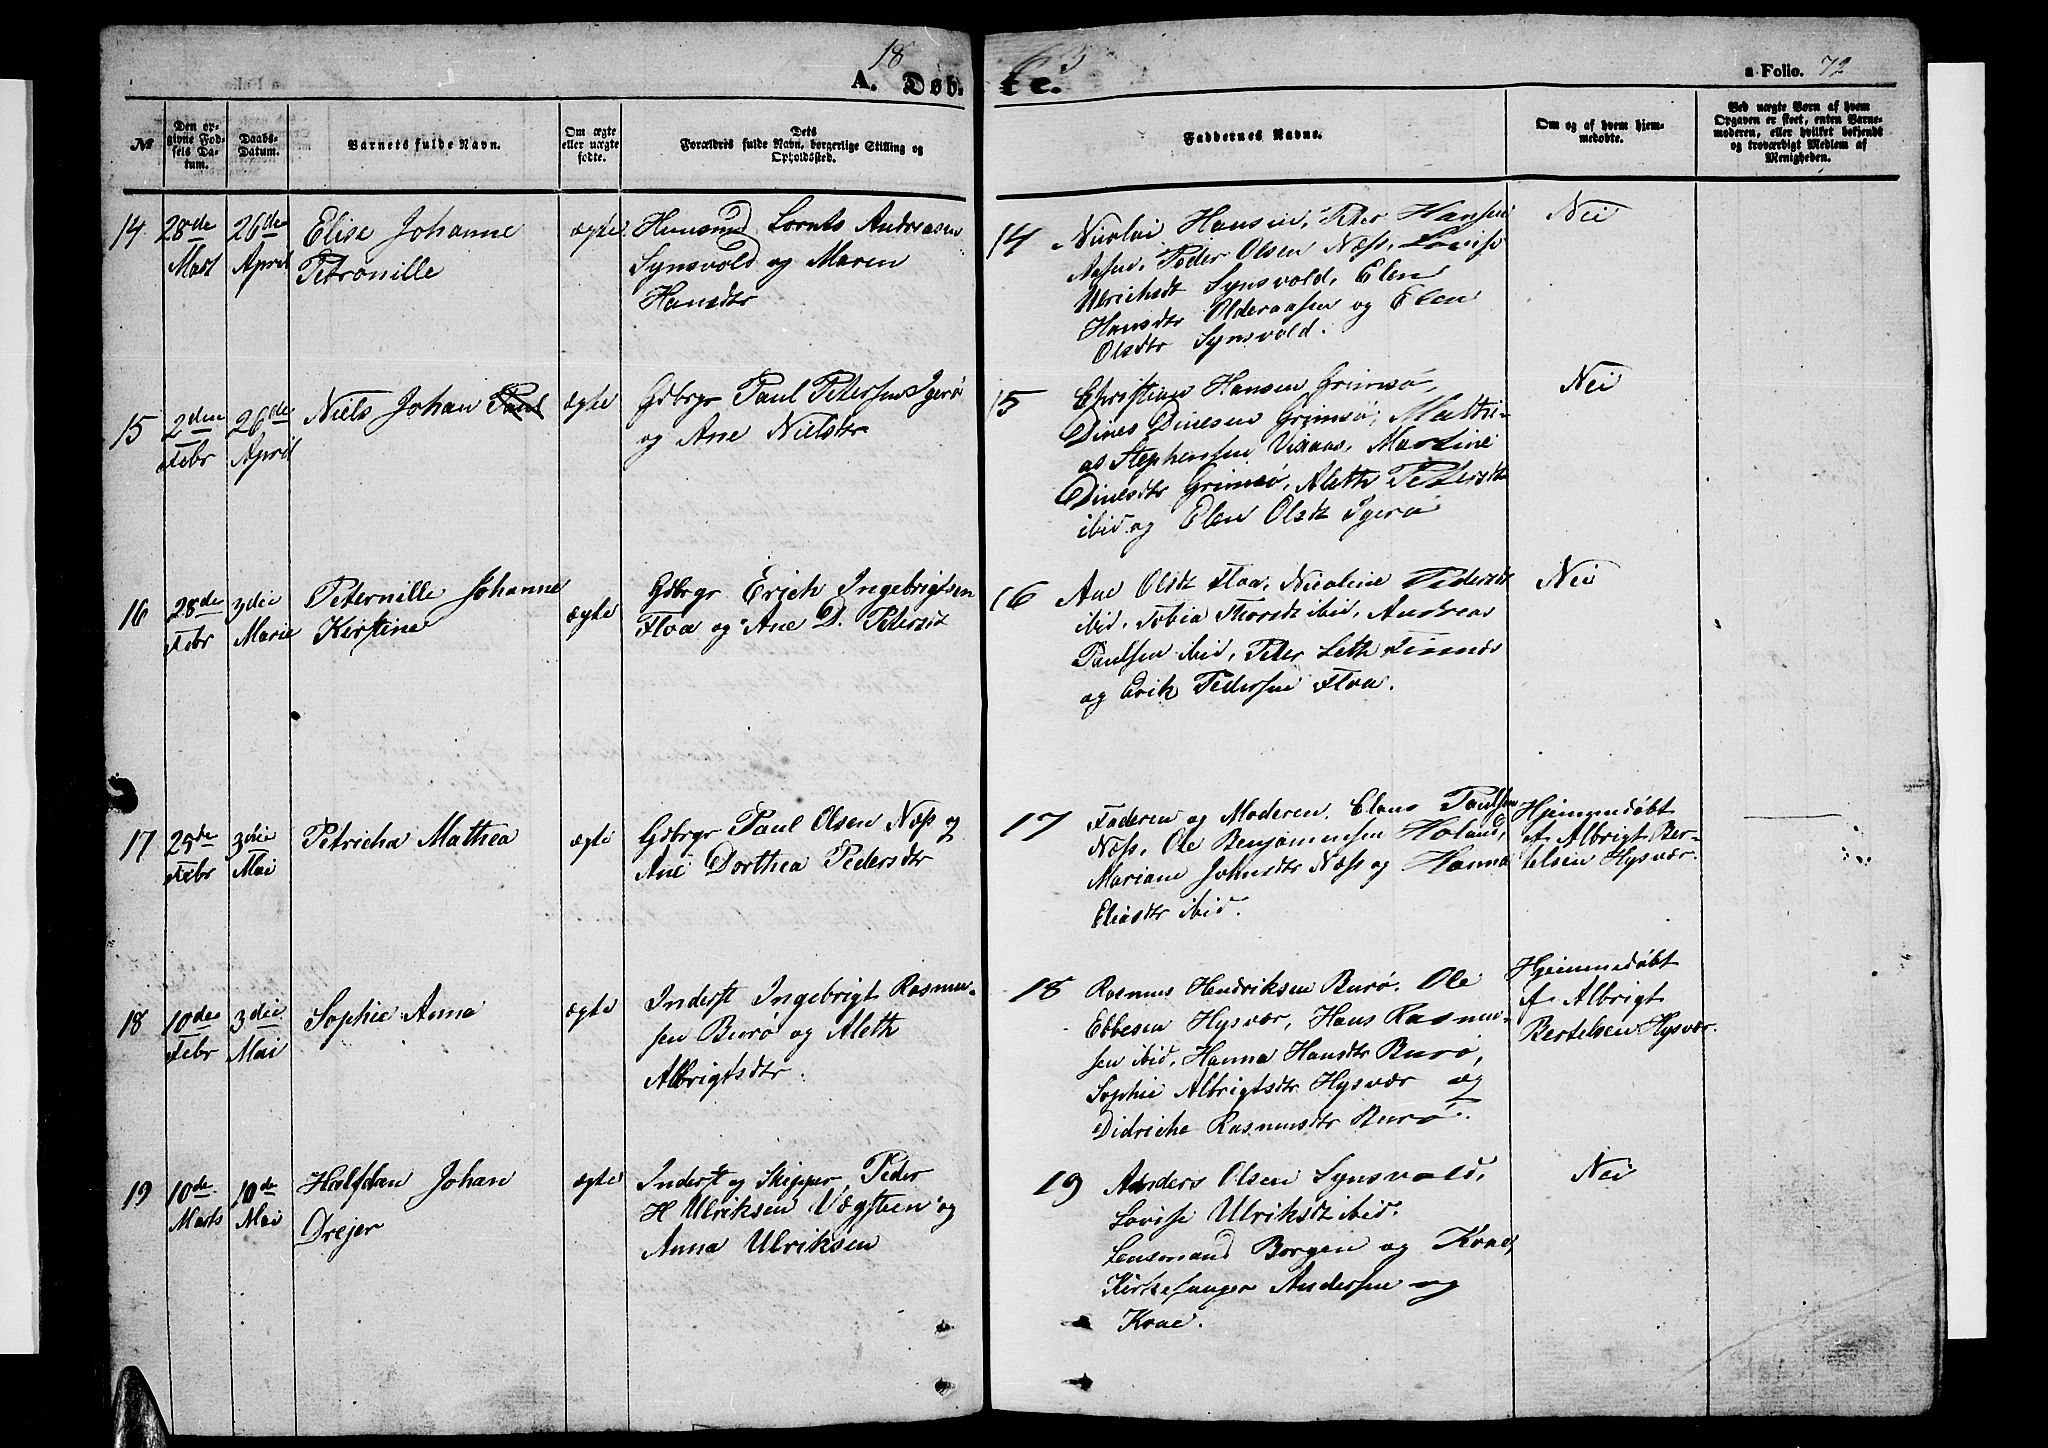 18 63
A. Døb-te.
a Folio. 72
№
Den op-
givne Fød-
sels Da-
tum.
Daabs-
Datum.
Barnets fulde Navn.
Om ægte
eller uægte
fødte.
Dets
Forældres fulde Navn, borgerlige Stilling og
Opholdssted.
Faddernes Navne.
Om og af hvem hjem-
medøbte.
Ved uægte Børn af hvem
Opgaven er skeet, enten Barne-
moderen, eller hvilket bekjendt
og troværdigt Medlem af
Menigheden.
14
28de
Mart
26de
April
Elise Johanne
Petronille
ægte
Huusmd Lornts Andreasen
Synsvold og Maren
Hansdtr
14
Nicolai Hansen, Peter Hansen
Aasen, Peder Olsen Næss, Lovise
Ulrichsdt Synsvold, Elen
Hansdtr Olderaasen og Elen
Olsdtr Synsvold.
Nei
15
2den
Febr
26de
April
Niels Johan Paul
ægte
Gdbrgr Paul Petersen Igerø
og Ane Nielsdtr
15
Christian Hansen Grimsø,
Dines Dinesen Grimsø, Mathi-
as Stephensen Vikaas, Martine
Dinesdtr Grimsø, Aleth Petersdtr
ibid og Elen Olsdt Igerø
Nei
16
28de
Febr
3die
Marie
Peternille Johanne
Kirstine
ægte
Gdbrgr Erich Ingebrigtsen
Floa og Ane D. Petersdt
16
Ane Olsdt Floa, Nicoline Pedersdt
ibid, Tobia Thorsdt ibid, Andreas
Paulsen ibid, Peter Leth
og Erik Pedersen Floa.
Nei
17
29de
Febr
3die
Mai
Petricha Mathea
ægte
Gdbrgr Paul Olsen Næss og
Ane Dorthea Pedersdtr
17
Faderen og Moderen, Elans Paulsen
Næss, Ole Benjaminsen Holand,
Mariane Johnsdtr Næss og Hanna
Eliasdtr ibid.
Hjemmedøbt
Af Albrigt Ber-
telsen Hysvær.
18
10de
Febr
3die
Mai
Sophie Anna
ægte
Inderst Ingebrigt Rasmu-
sen Burø og Aleth
Albrigtsdtr.
18
Rasmus Hendriksen Burø, Ole
Ebbesen Hysvær, Hans Rasmu-
sen ibid, Hanna Hansdtr Burø,
Sophie Albrigtsdtr Hysvær og
Didriche Rasmusdtr Burø.
Hjemmedøbt
Af Albrigt
Bertelsen Hysvær.
19
10de
Marts
10de
Mai
Halfdan Johan
Drejer
ægte
Inderst og Skipper, Peder
H Ulriksen Vægsteen og
Anna Ulriksen
19
Anders Olsen Synsvold,
Lovise Ulriksdt ibid.
Lensmand Borgen og Kone,
Kirkesanger Andersen og
Kone.
Nei